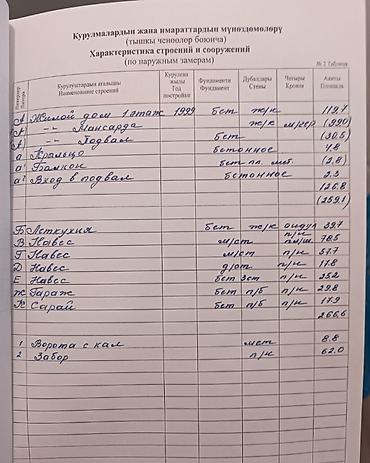 Курулмалардын жана имараттардын мүнөздөмөлөрү
(тышкы ченөөлөр боюнча)
Характеристика строений и сооружений
(по наружным замерам)
№ 2 Таблица
Курулуштардын аталышы Наименование строений Курулган жылы Год постройки Фундаменти Фундамент Дубалдары Стены Чатыры Кровля Аянты Площадь
А Жилой дом 1 этаж 1999 Бет ж/к 119,7
А -"- Мансарда ж/к м/чер (99,0)
А -"- Подвал бет (30,5)
а Крыльцо бетонное 4.8
а Балкон бет пл. мет. (2,8)
а Вход в подвал бетонное 2.3
126,8
(259,1)
Б Леткухня бет ж/к ондул 39,7
В Навес м/ст п/н 78,5
Г Навес м/ст п/н 51.7
Д Навес д/ст п/н 17.8
Е Навес бет 3ст п/н 25,2
Ж Гараж бет п/б п/н 29,8
К Сарай бет п/б п/н 17,9
266,6
1 Ворота с кал мет 8.8
2 Забор п/н 62.0